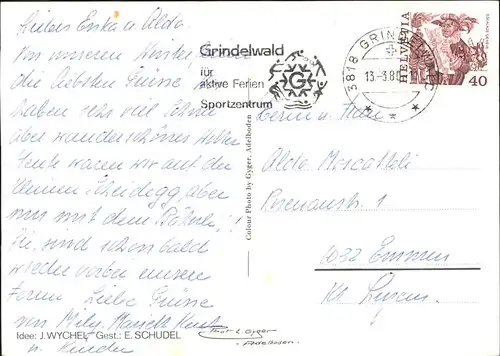 Liebes Erika u. Aldo.
Von unseren Winterferien
die liebsten Grüsse. Wir
haben sehr viel Schnee
aber wunderschönes Wetter
Heute waren wir auf der
kleinen Scheidegg, aber
nur mit dem Bähnli!!
Sie sind schon bald
wieder vorbei unsere
Ferien. Liebe Grüsse
von
u. Kinder
Idee: J. WYCHEL Gest.: E. SCHUDEL
Grindelwald
für
aktive Ferien
Sportzentrum
G
3818 GRINDELWALD
13.-3.80
HELVETIA
40
Colour Photo by Gyger, Adelboden
Herrn u. Frau
Aldo Moscatelli
Rosenaustr. 1
6032 Emmen
Kt. Luzern
Phot. E. Gyger
Adelboden